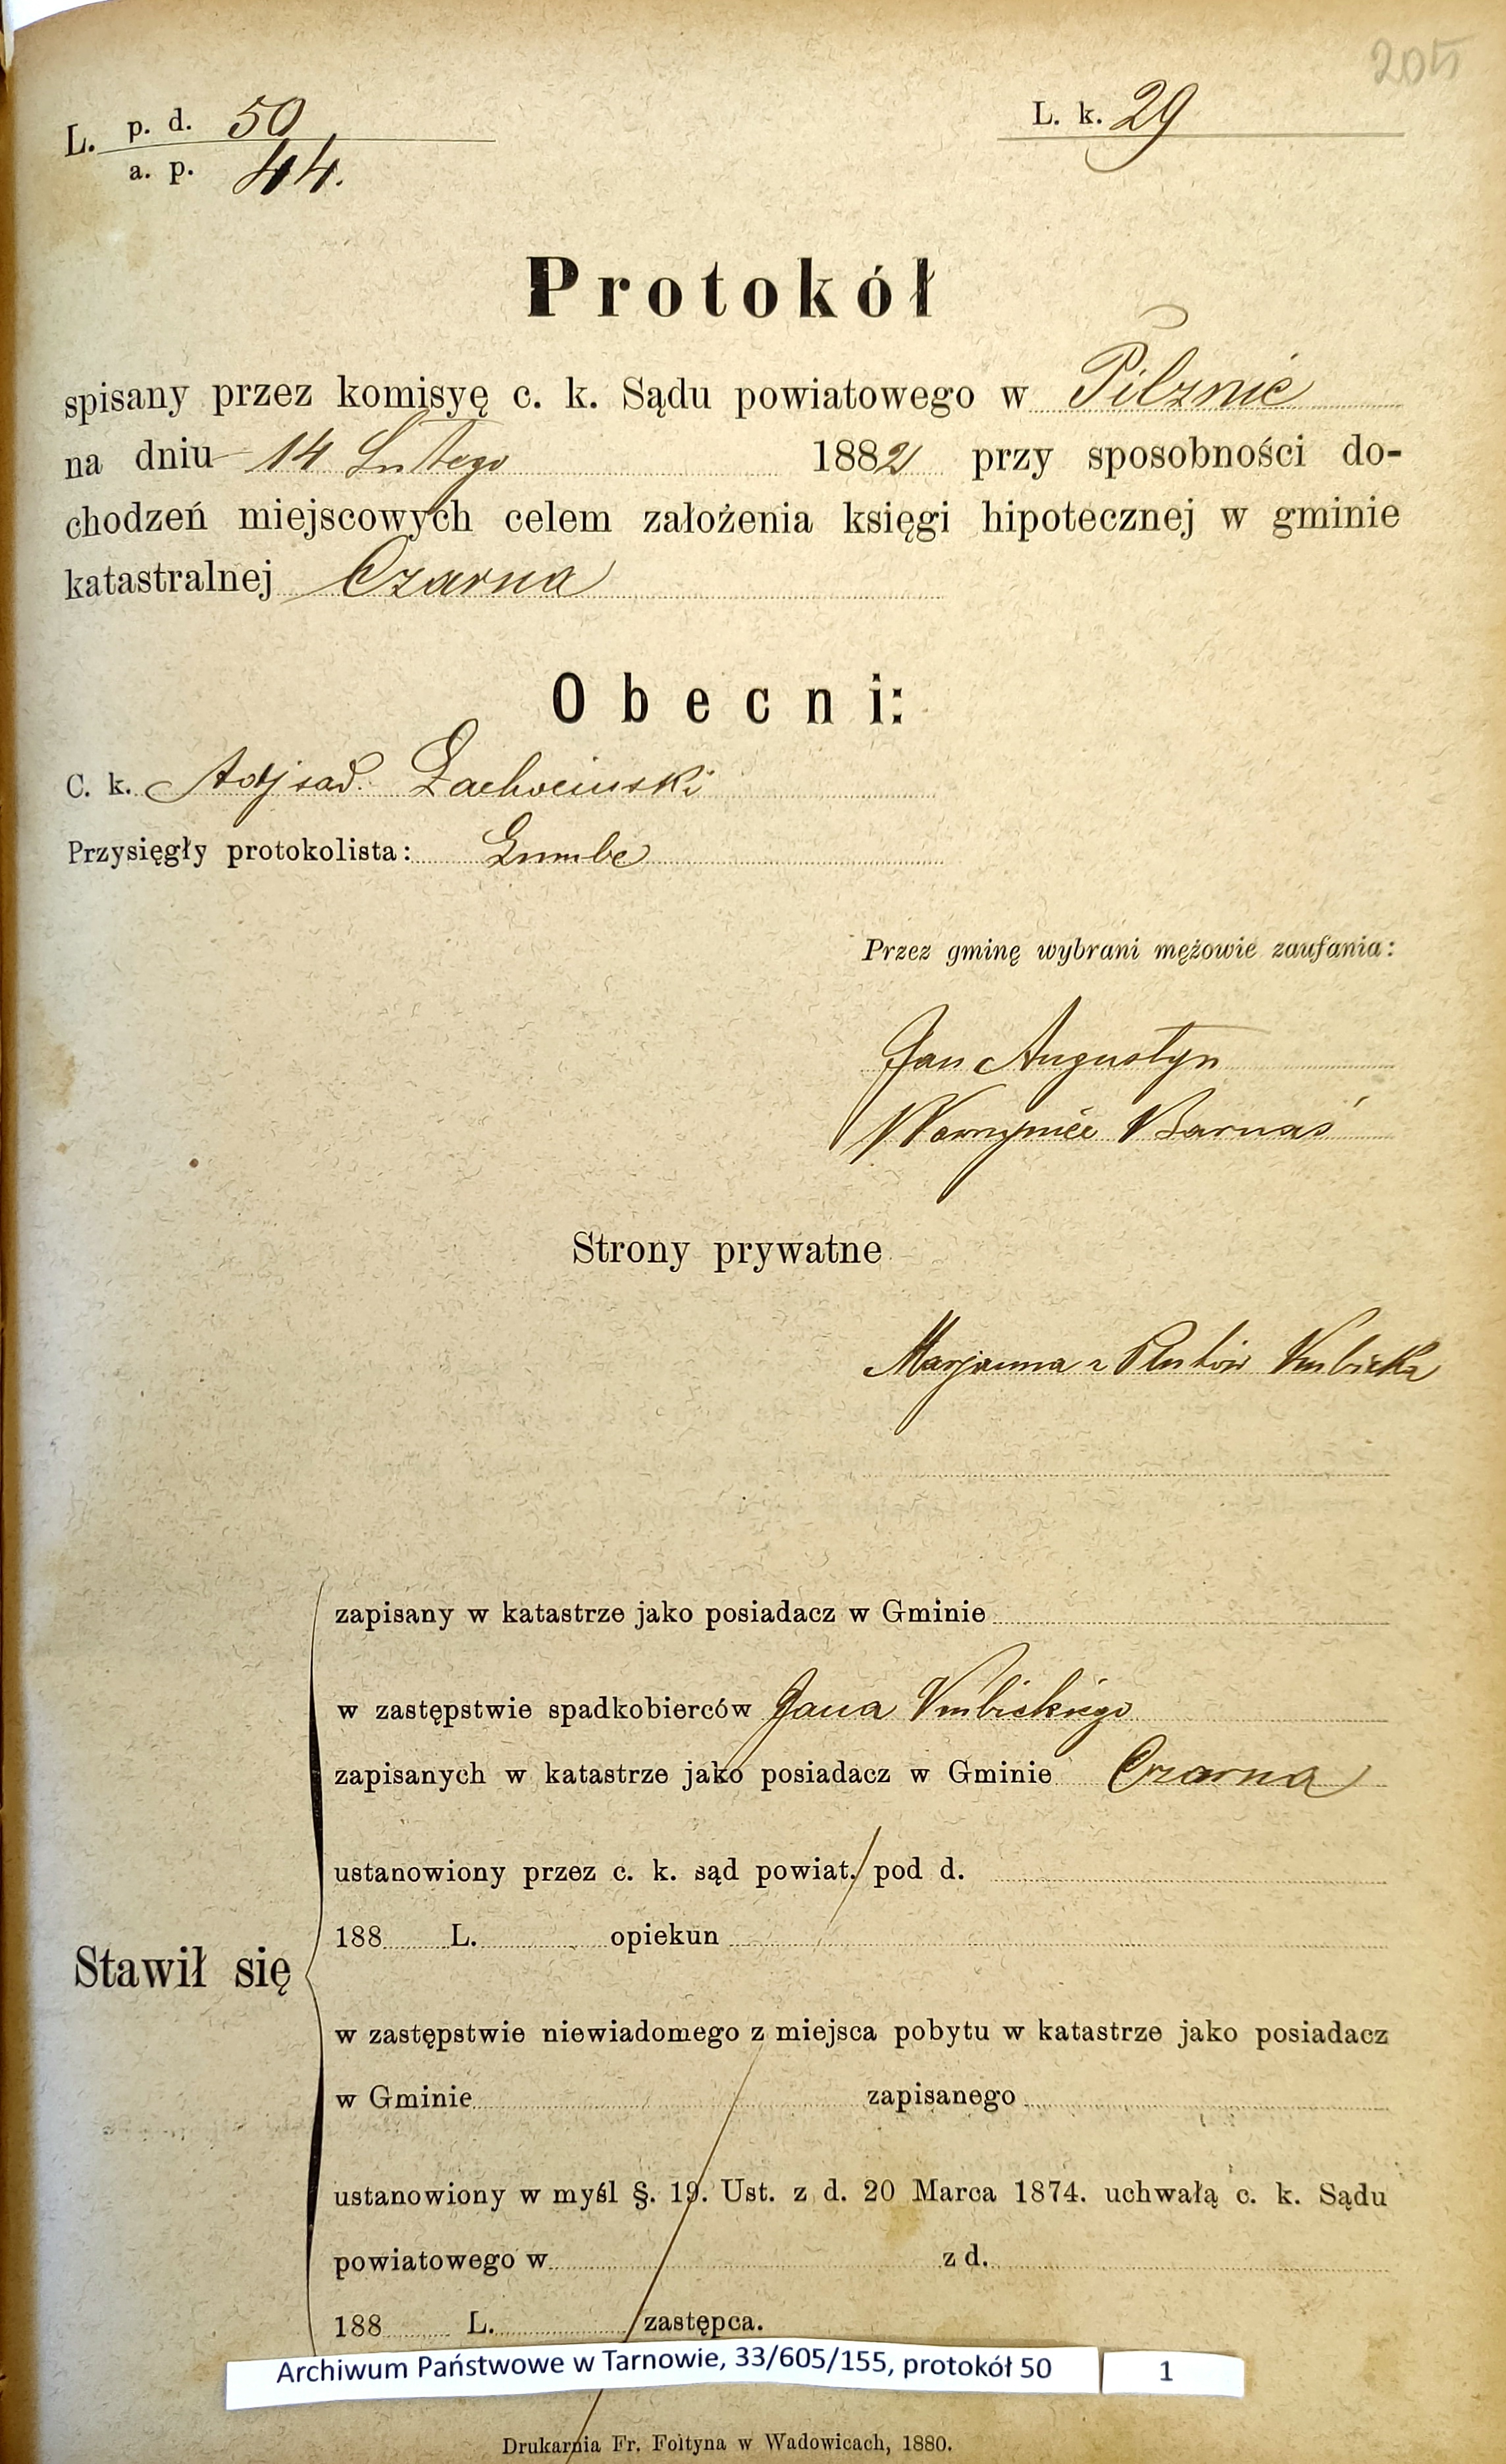 205
L. p. d. 50
a. p. 44.
L. k. 29
Protokół
spisany przez komisyę c. k. Sądu powiatowego w Pilznie
na dniu 14 Lutego 1882 przy sposobności do-
chodzeń miejscowych celem założenia księgi hipotecznej w gminie
katastralnej Czarna
Obecni:
C. k. Adj sąd.
Przysięgły protokolista:
Przez gminę wybrani mężowie zaufania:
Jan Augustyn
Wawrzyniec Barnaś
Strony prywatne
Marjanna z
zapisany w katastrze jako posiadacz w Gminie
w zastępstwie spadkobierców Jana
zapisanych w katastrze jako posiadacz w Gminie Czarna
ustanowiony przez c. k. sąd powiat. pod d.
188 L. opiekun
Stawił się
w zastępstwie niewiadomego z miejsca pobytu w katastrze jako posiadacz
w Gminie zapisanego
ustanowiony w myśl §. 19. Ust. z d. 20 Marca 1874. uchwałą c. k. Sądu
powiatowego w z d.
188 L. zastępca.
Archiwum Państwowe w Tarnowie, 33/605/155, protokół 50 1
Drukarnia Fr. Foltyna w Wadowicach, 1880.